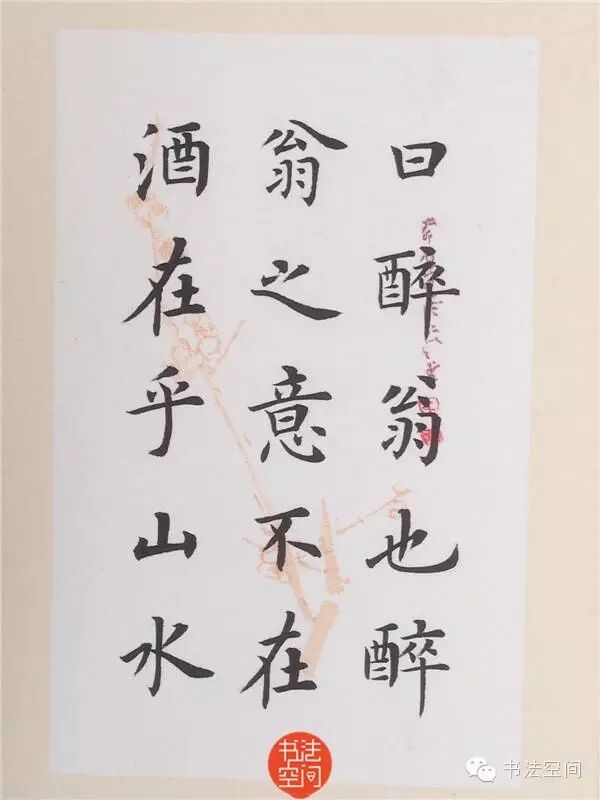 曰醉翁也醉
翁之意不在
酒在乎山水
书法
空间
书法空间